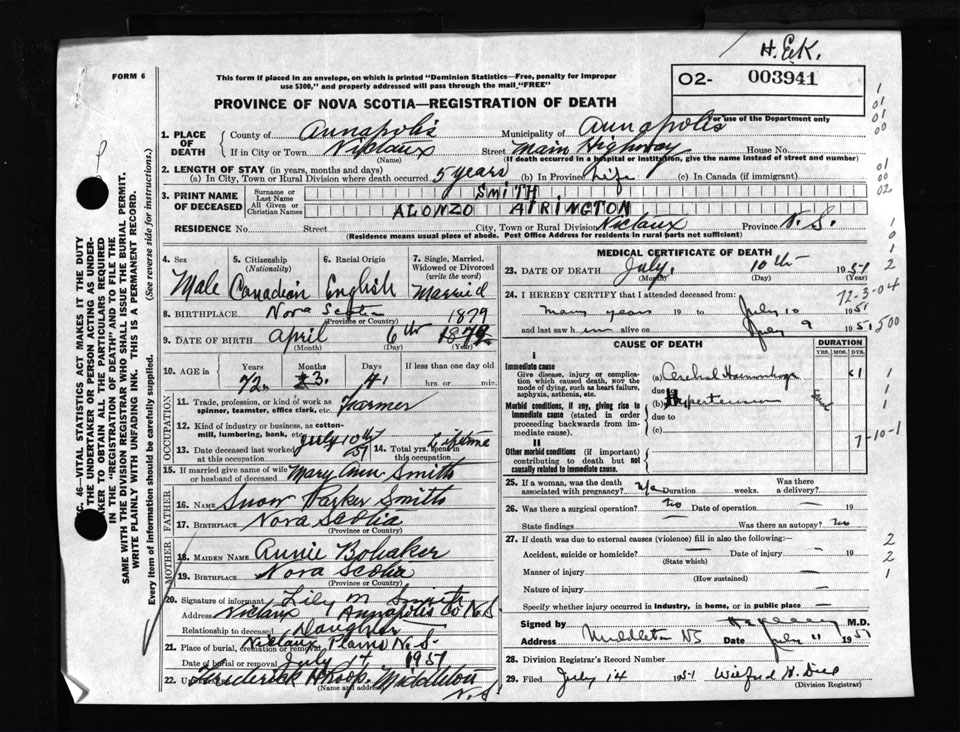 H.E.K.
FORM 6
This form if placed in an envelope, on which is printed "Dominion Statistics—Free, penalty for improper
use $300," and properly addressed will pass through the mail "FREE"
02- 003941
For use of the Department only
PROVINCE OF NOVA SCOTIA—REGISTRATION OF DEATH
1. PLACE OF DEATH
County of Annapolis Municipality of Annapolis
If in City or Town Nictaux (Name) Street Main Highway House No.
(If death occurred in a hospital or institution, give the name instead of street and number)
2. LENGTH OF STAY (in years, months and days)
(a) In City, Town or Rural Division where death occurred 5 years (b) In Province Life (c) In Canada (if immigrant)
3. PRINT NAME OF DECEASED
Surname or Last Name SMITH
All Given or Christian Names ALONZO AIRINGTON
RESIDENCE No. Street City, Town or Rural Division Nictaux Province N.S.
(Residence means usual place of abode. Post Office Address for residents in rural parts not sufficient)
4. Sex Male
5. Citizenship (Nationality) Canadian
6. Racial Origin English
7. Single, Married, Widowed or Divorced (write the word) Married
8. BIRTHPLACE Nova Scotia (Province or Country)
1879
9. DATE OF BIRTH April (Month) 6th (Day) 1879 (Year)
10. AGE in Years 72 Months 3 Days 4 If less than one day hrs. or min.
OCCUPATION
11. Trade, profession, or kind of work as spinner, teamster, office clerk, etc. Farmer
12. Kind of industry or business, as cotton-mill, lumbering, bank, etc.
13. Date deceased last worked at this occupation July 10th 51
14. Total yrs. spent in this occupation Lifetime
15. If married give name of wife or husband of deceased Mary Smith
FATHER
16. Name Snow Parker Smith
17. Birthplace Nova Scotia
(Province or Country)
MOTHER
18. MAIDEN NAME Annie Bohaker
19. BIRTHPLACE Nova Scotia
(Province or Country)
20. Signature of informant Lily M Smith
Address Nictaux Annapolis Co N.S
Relationship to deceased Daughter
21. Place of burial, cremation or removal Nictaux Plains N.S.
Date of burial or removal July 14 1951
22. Undertaker Frederick Roop. Middleton N.S
(Name and address)
MEDICAL CERTIFICATE OF DEATH
23. DATE OF DEATH July, (Month) 10th (Day) 1951 (Year)
72-3-04
24. I HEREBY CERTIFY that I attended deceased from:
many years 19 to July 10 1951
and last saw him alive on July 9 1951
500
CAUSE OF DEATH
DURATION
YRS. MOS. DYS.
I
Immediate cause
Give disease, injury or complication which caused death, NOT the mode of dying, such as heart failure, asphyxia, asthenia, etc.
(a) Cerebral Haemorrhage <1
due to
Morbid conditions, if any, giving rise to immediate cause (stated in order proceeding backwards from immediate cause).
(b) Hypertension
due to
(c)
7-10-1
II
Other morbid conditions (if important) contributing to death but not causally related to immediate cause.
25. If a woman, was the death associated with pregnancy? n/a Duration weeks. Was there a delivery?
26. Was there a surgical operation? no Date of operation — 19
State findings — Was there an autopsy? no
27. If death was due to external causes (violence) fill in also the following:
Accident, suicide or homicide? — Date of injury — 19
(State which)
Manner of injury —
(How sustained)
Nature of injury —
Specify whether injury occurred in industry, in home, or in public place —
Signed by M.D.
Address Middleton NS Date July 11 1951
28. Division Registrar's Record Number
29. Filed July 14 1951
(Division Registrar)
SEC. 46—VITAL STATISTICS ACT MAKES IT THE DUTY
THE UNDERTAKER OR PERSON ACTING AS UNDER-
TAKER TO OBTAIN ALL THE PARTICULARS REQUIRED
IN THE "REGISTRATION OF DEATH" AND TO FILE THE
SAME WITH THE DIVISION REGISTRAR WHO SHALL ISSUE THE BURIAL PERMIT.
WRITE PLAINLY WITH UNFADING INK. THIS IS A PERMANENT RECORD.
Every item of information should be carefully supplied.
(See reverse side for instructions.)